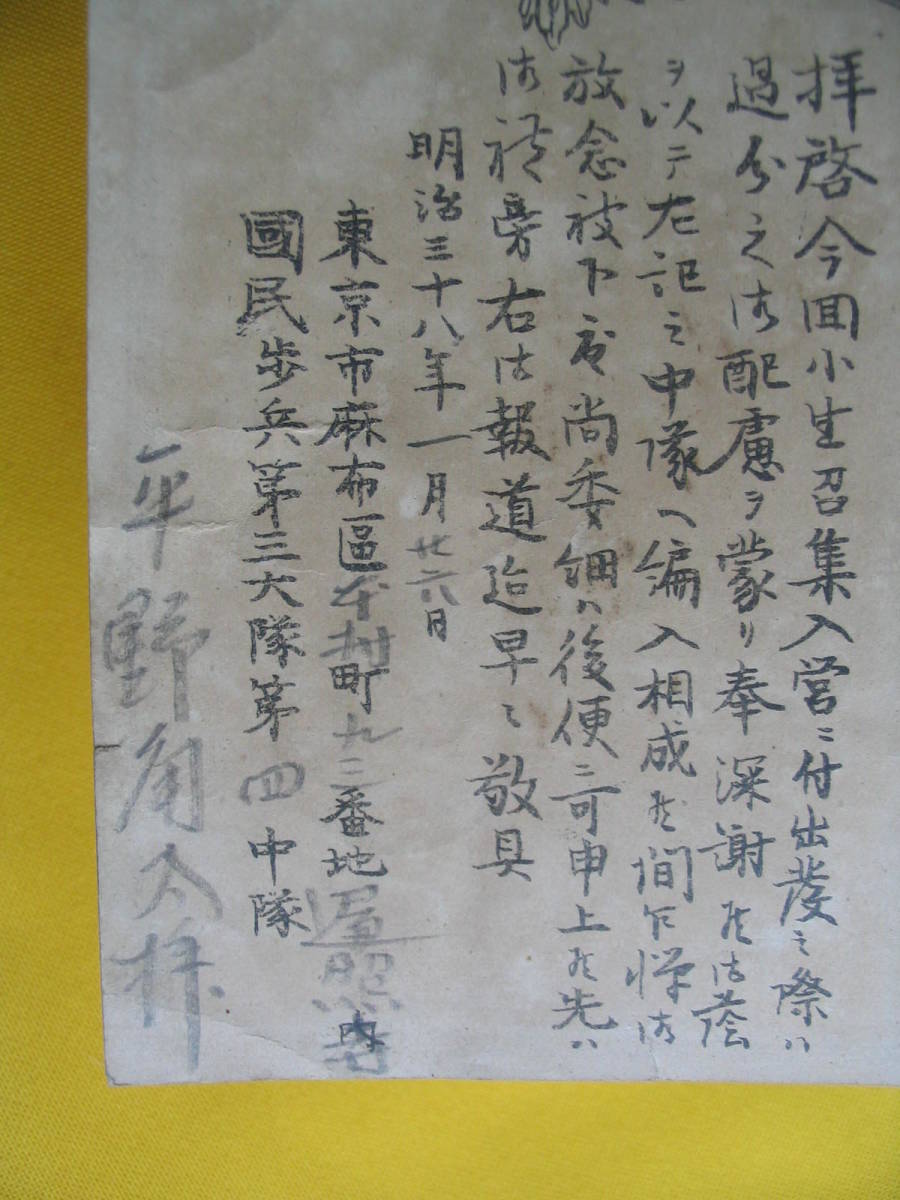 拝啓今回小生召集入営ニ付出発之際ハ
過分之御配慮ヲ蒙リ奉深謝候御蔭
ヲ以テ左記之中隊ヘ編入相成候間乍憚御
放念被下度尚委細ハ後便ニ可申上候先ハ
御礼旁右御報道迄早々敬具
明治三十八年一月廿六日
東京市麻布區本村町九二番地遍照寺内
國民歩兵第三大隊第四中隊
平野角